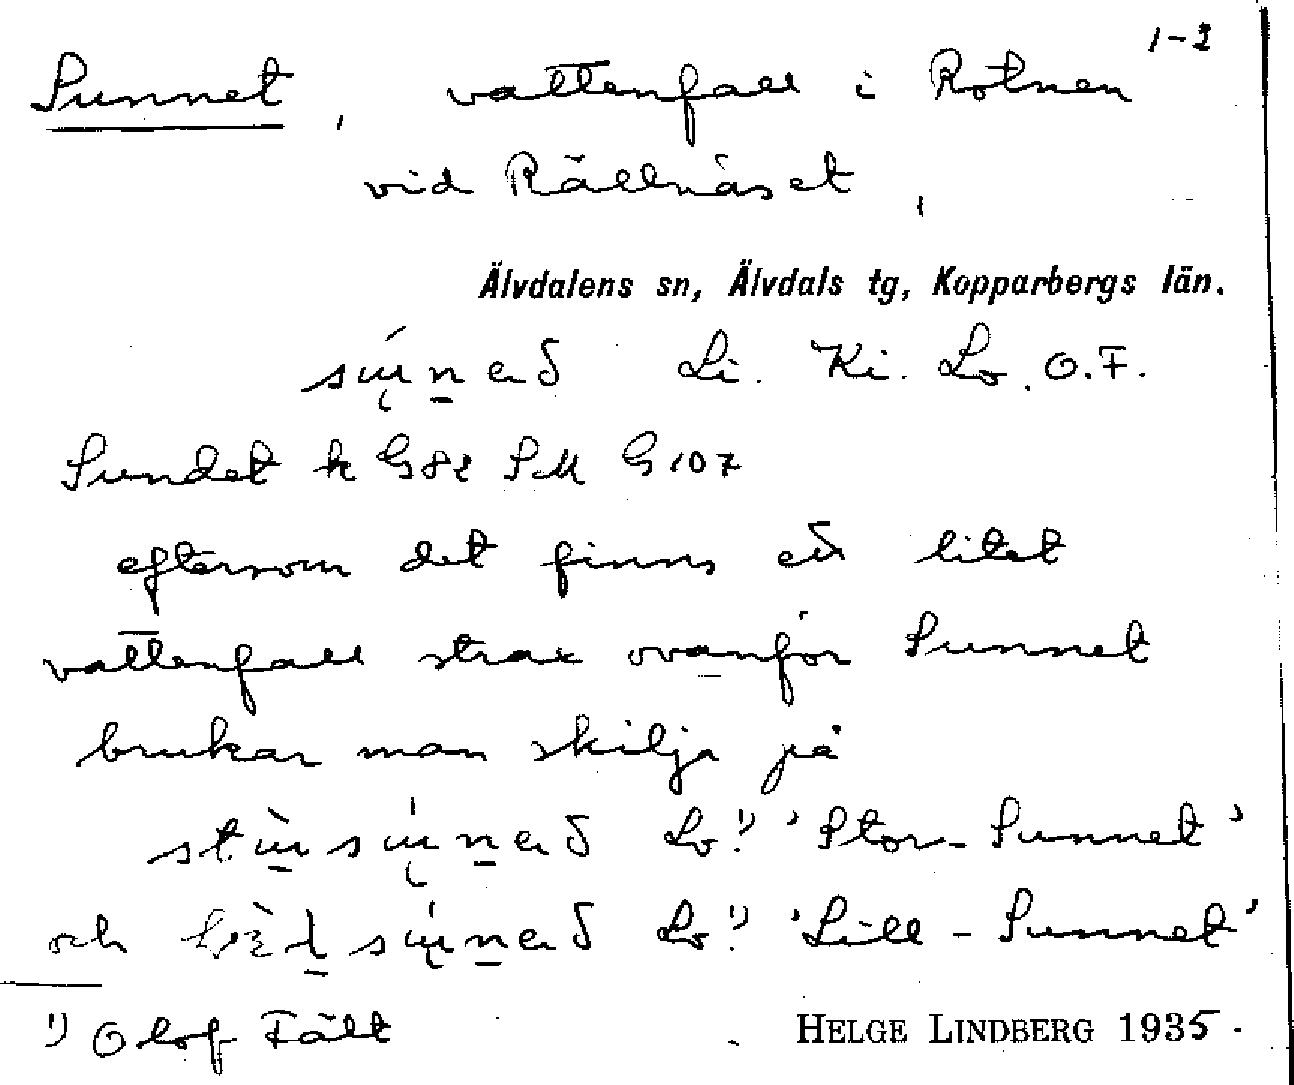 1-2
Sunnet, vattenfall i Rotnen
vid Rällnäset,
Älvdalens sn, Älvdals tg, Kopparbergs län.
Li. Ki. Lo. O.F.
Sundet k G82 SM G107
eftersom det finns ett litet
vattenfall strax ovanför Sunnet
brukar man skilja på
Lo.¹⁾ 'Stor-Sunnet'
och Lo.¹⁾ 'Lill-Sunnet'
¹⁾ Olof Fält HELGE LINDBERG 1935.